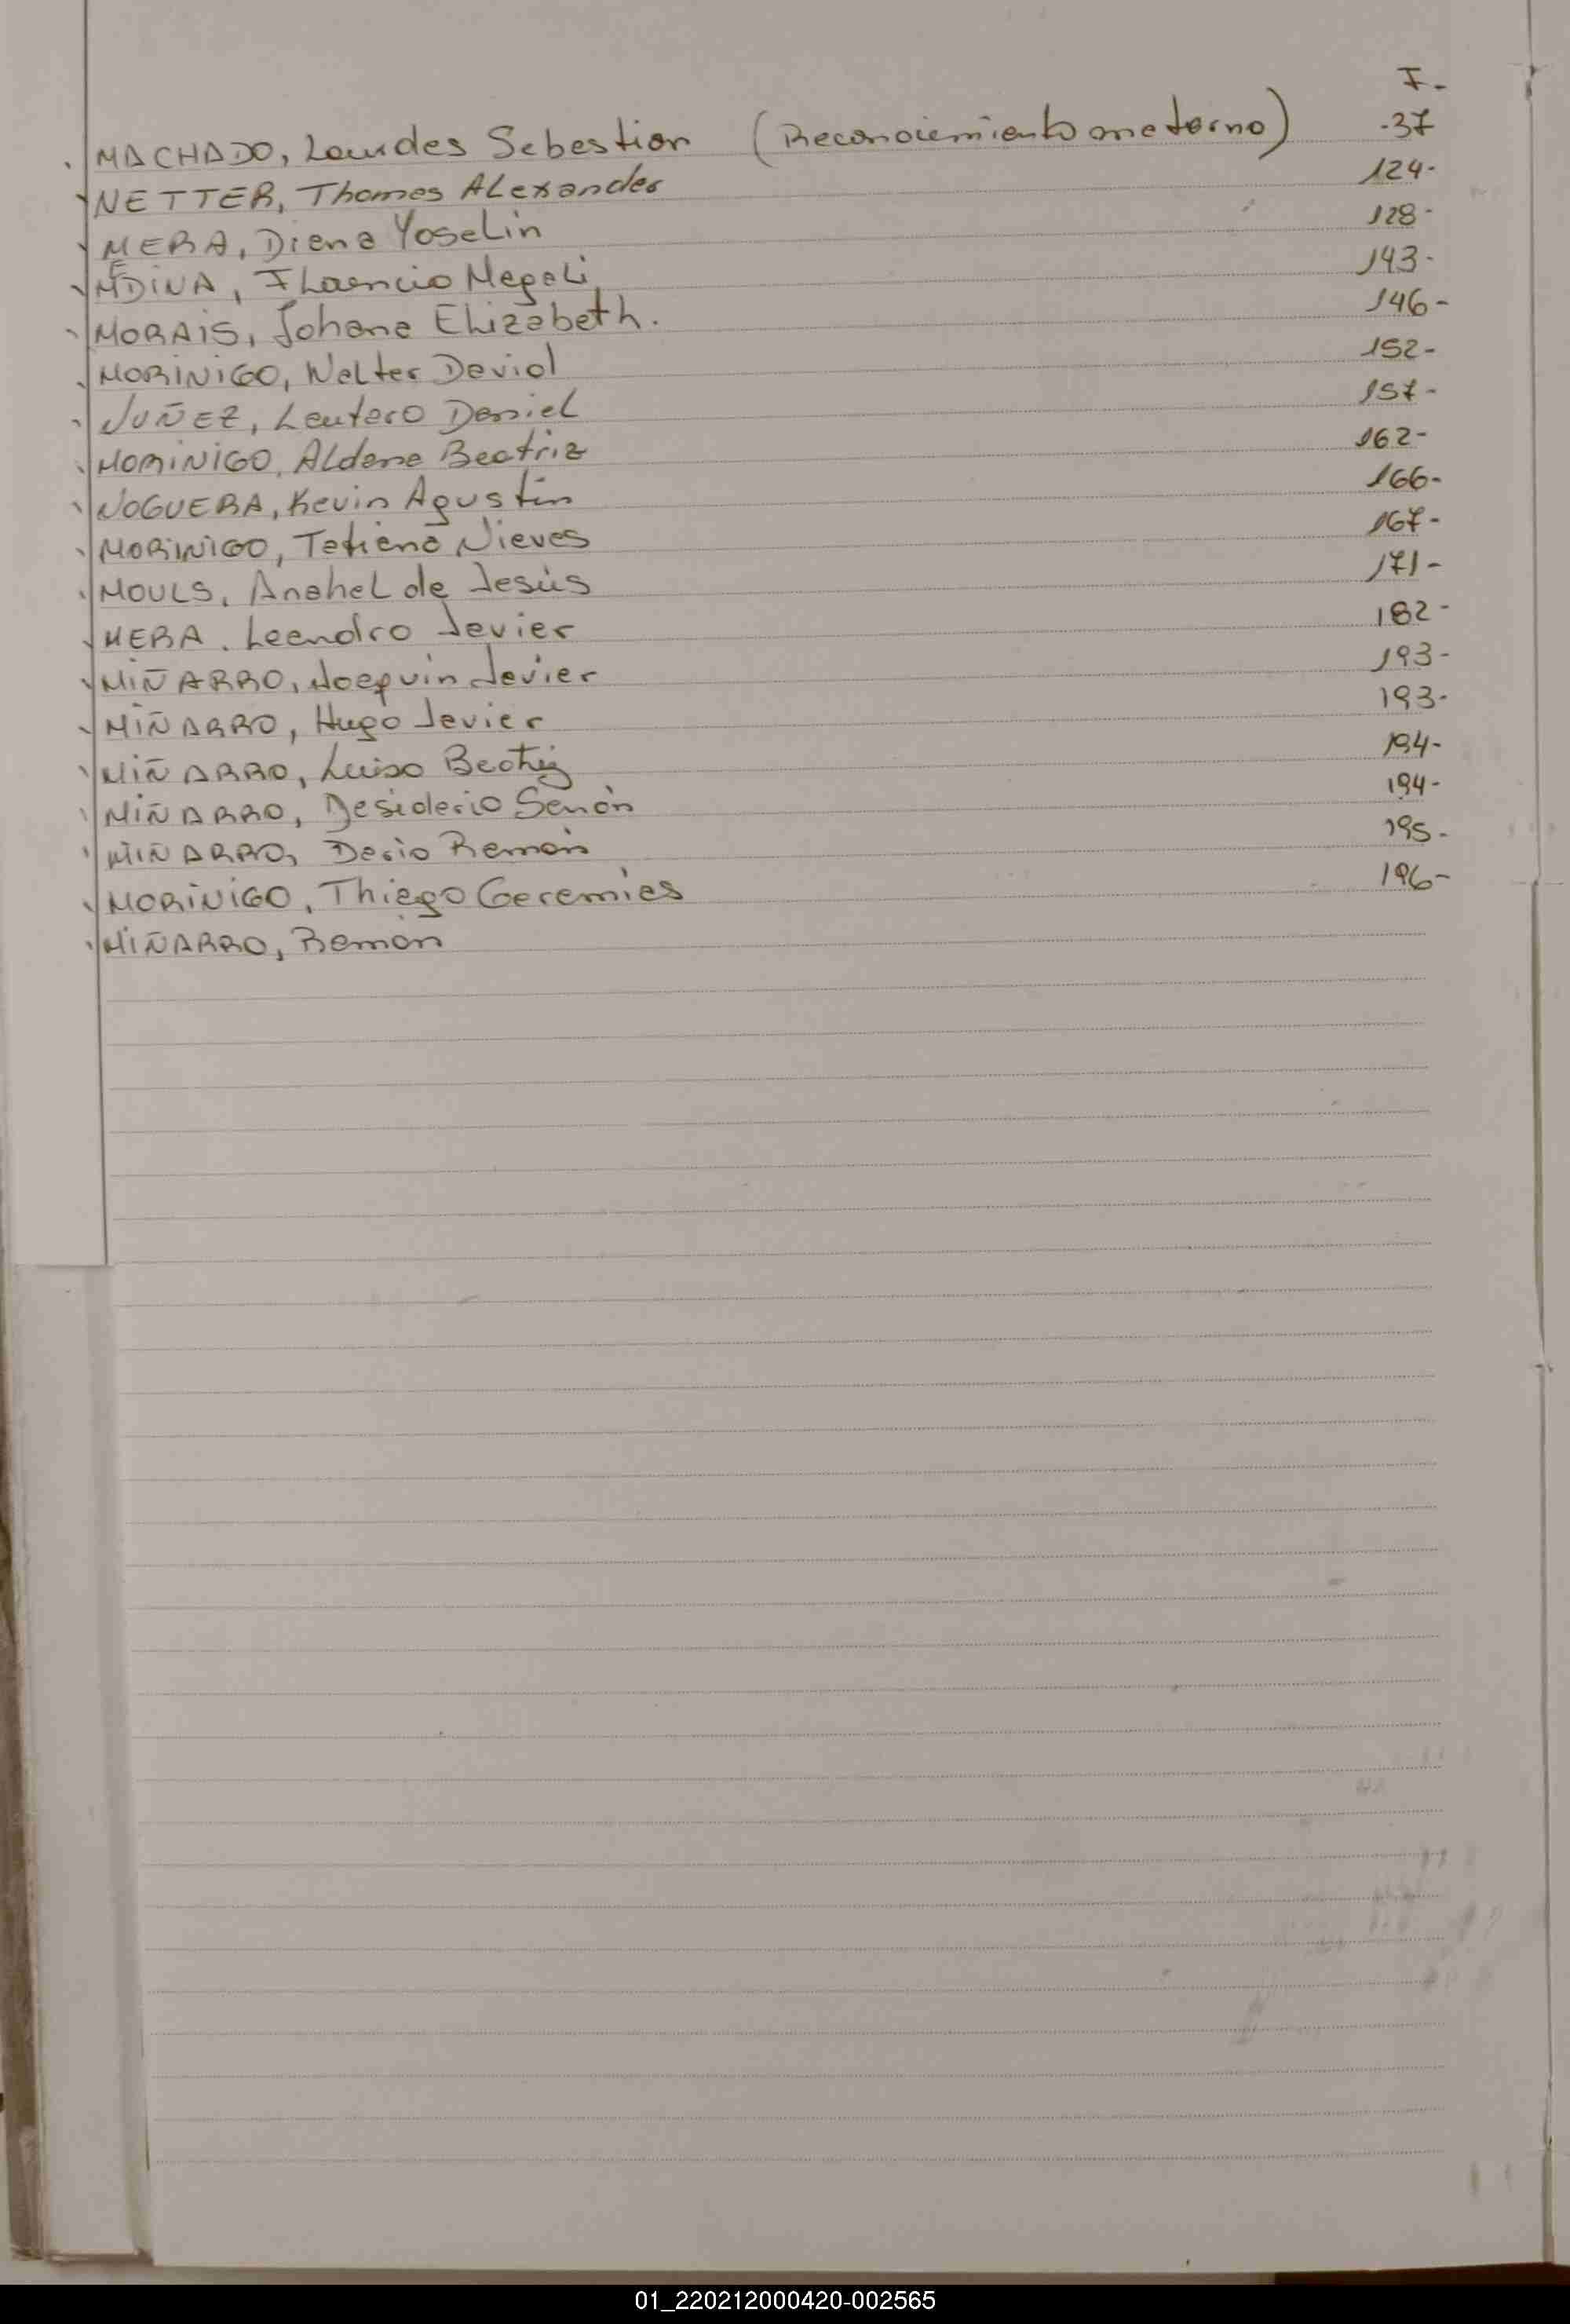 F.
MACHADO, Lourdes Sebastian (Reconocimiento materno) 37
NETTER, Thomas Alexander 124-
MERA, Diana Yoselin 128-
MEDINA, Florencia Magali 143-
MORAIS, Johana Elizabeth. 146-
MORINIGO, Walter David 152-
NUÑEZ, Lautaro Daniel 157-
MORINIGO, Aldana Beatriz 162-
NOGUERA, Kevin Agustín 166-
MORINIGO, Tatiana Nieves 167-
MOULS, Anahel de Jesús 171-
MERA. Leandro Javier 182-
MIÑARRO, Joaquin Javier 193-
MIÑARRO, Hugo Javier 193-
MIÑARRO, Luisa Beatriz 194-
MIÑARRO, Desiderio Senón 194-
MIÑARRO, Dario Ramón 195-
MORINIGO, Thiago Geremias 196-
MIÑARRO, Ramon
01_220212000420-002565